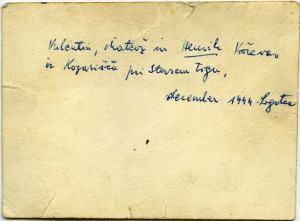 Valentin, Matevž in Henrik Kočevar
iz Kozarišča pri Starem trgu,
december 1944 - Logatec